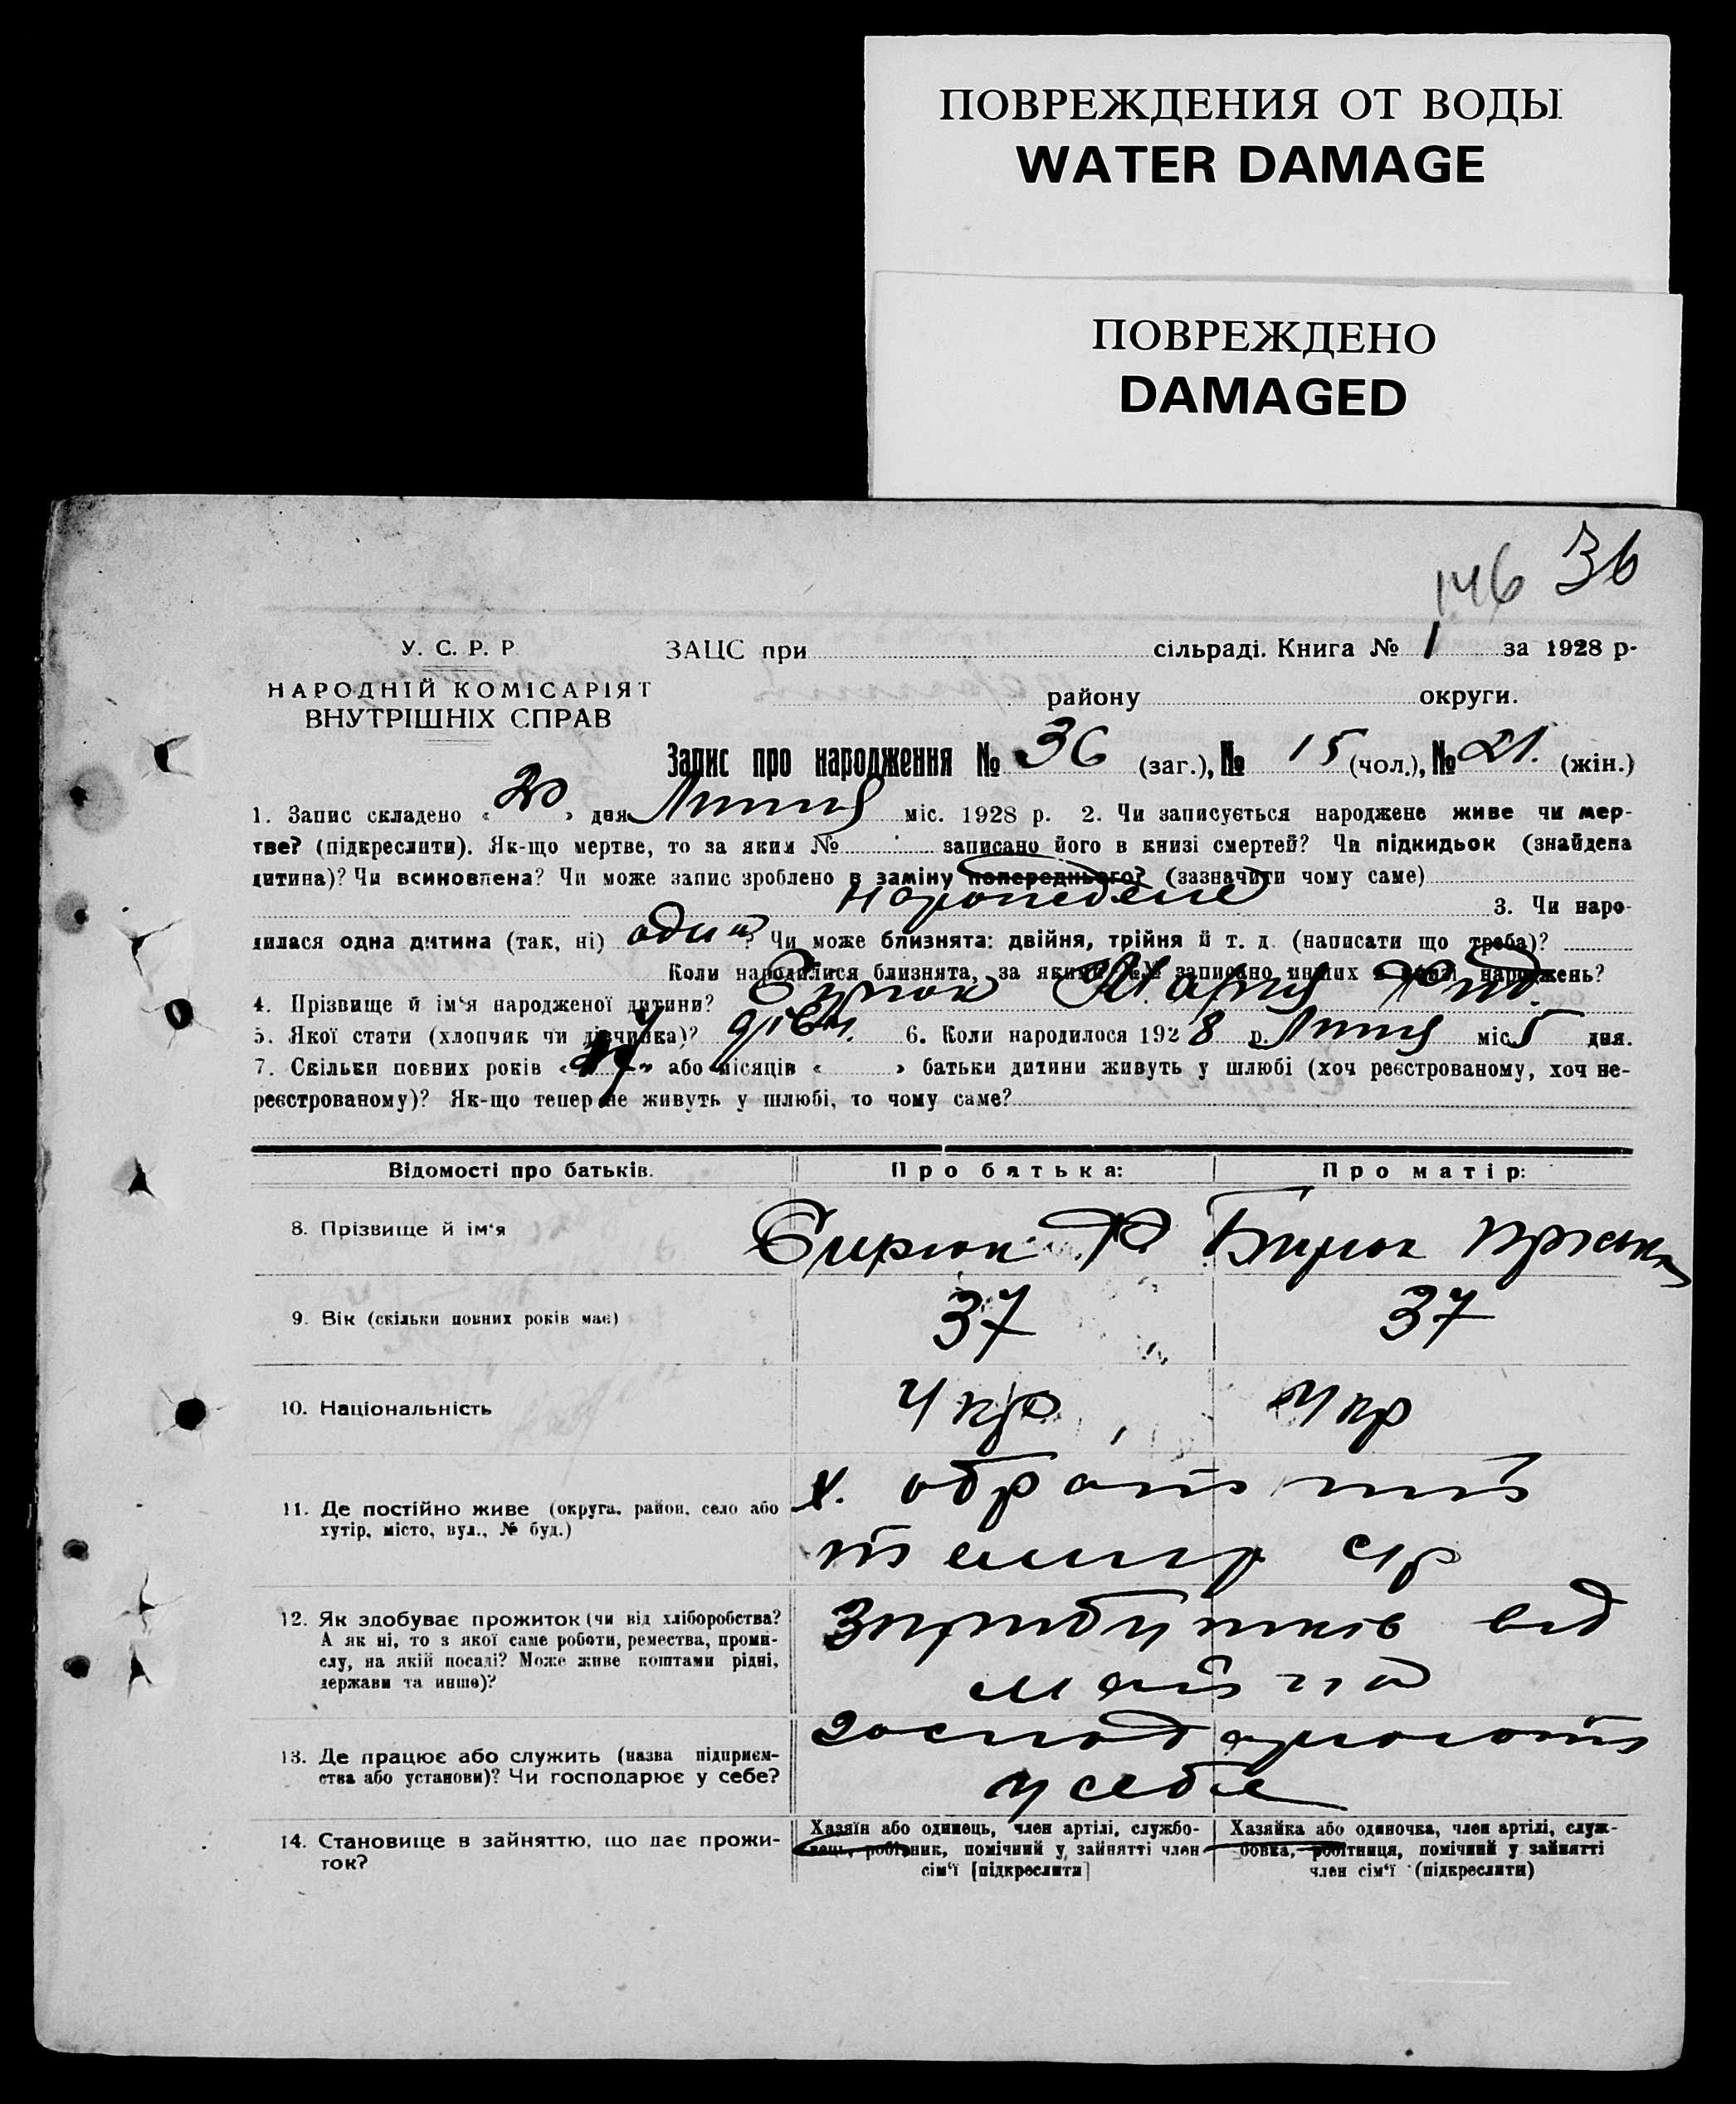 ПОВРЕЖДЕНИЯ ОТ ВОДЫ
WATER DAMAGE
ПОВРЕЖДЕНО
DAMAGED
146 36
У. С. Р. Р
НАРОДНІЙ КОМІСАРІЯТ
ВНУТРІШНІХ СПРАВ
ЗАЦС при сільраді. Книга № 1 за 1928 р.
району округи.
Запис про народження № 36 (заг.), № 15 (чол.), № 21. (жін.)
1. Запис складено « 20 » дня Липня міс. 1928 р. 2. Чи записується народжене живе чи мер-
тве? (підкреслити). Як-що мертве, то за яким № записано його в книзі смертей? Чи підкидьок (знайдена
дитина)? Чи всиновлена? Чи може запис зроблено в заміну попереднього? (зазначити чому саме)
3. Чи наро-
дилася одна дитина (так, ні) один? Чи може близнята: двійня, трійня й т. д. (написати що треба)?
Коли народилися близнята, за якими №№ записано инших в книзі народжень?
4. Прізвище й ім'я народженої дитини? Бирюк Мария
5. Якої стати (хлопчик чи дівчинка)? дівч. 6. Коли народилося 1928 р. Липня міс 5 дня.
7. Скільки повних років « » або місяців « » батьки дитини живуть у шлюбі (хоч реєстрованому, хоч не-
реєстрованому)? Як-що тепер не живуть у шлюбі, то чому саме?
Відомості про батьків. Про батька: Про матір:
8. Прізвище й ім'я Бирюк Ф. Бирюк Пріська
9. Вік (скільки повних років має) 37 37
10. Національність Укр Укр
11. Де постійно живе (округа, район, село або
хутір, місто, вул., № буд.)
х.
12. Як здобуває прожиток (чи від хліборобства?
А як ні, то з якої саме роботи, ремества, проми-
слу, на якій посаді? Може живе коштами рідні,
держави та инше)?
від
майна
13. Де працює або служить (назва підприєм-
ства або установи)? Чи господарює у себе?
господарюють
у себе
14. Становище в зайняттю, що дає прожи-
ток?
Хазяїн або одинець, член артілі, службо-
вець, робітник, помічний у зайнятті член
сім'ї [підкреслити]
Хазяйка або одиночка, член артілі, служ-
бовка, робітниця, помічний у зайнятті
член сім'ї (підкреслити)